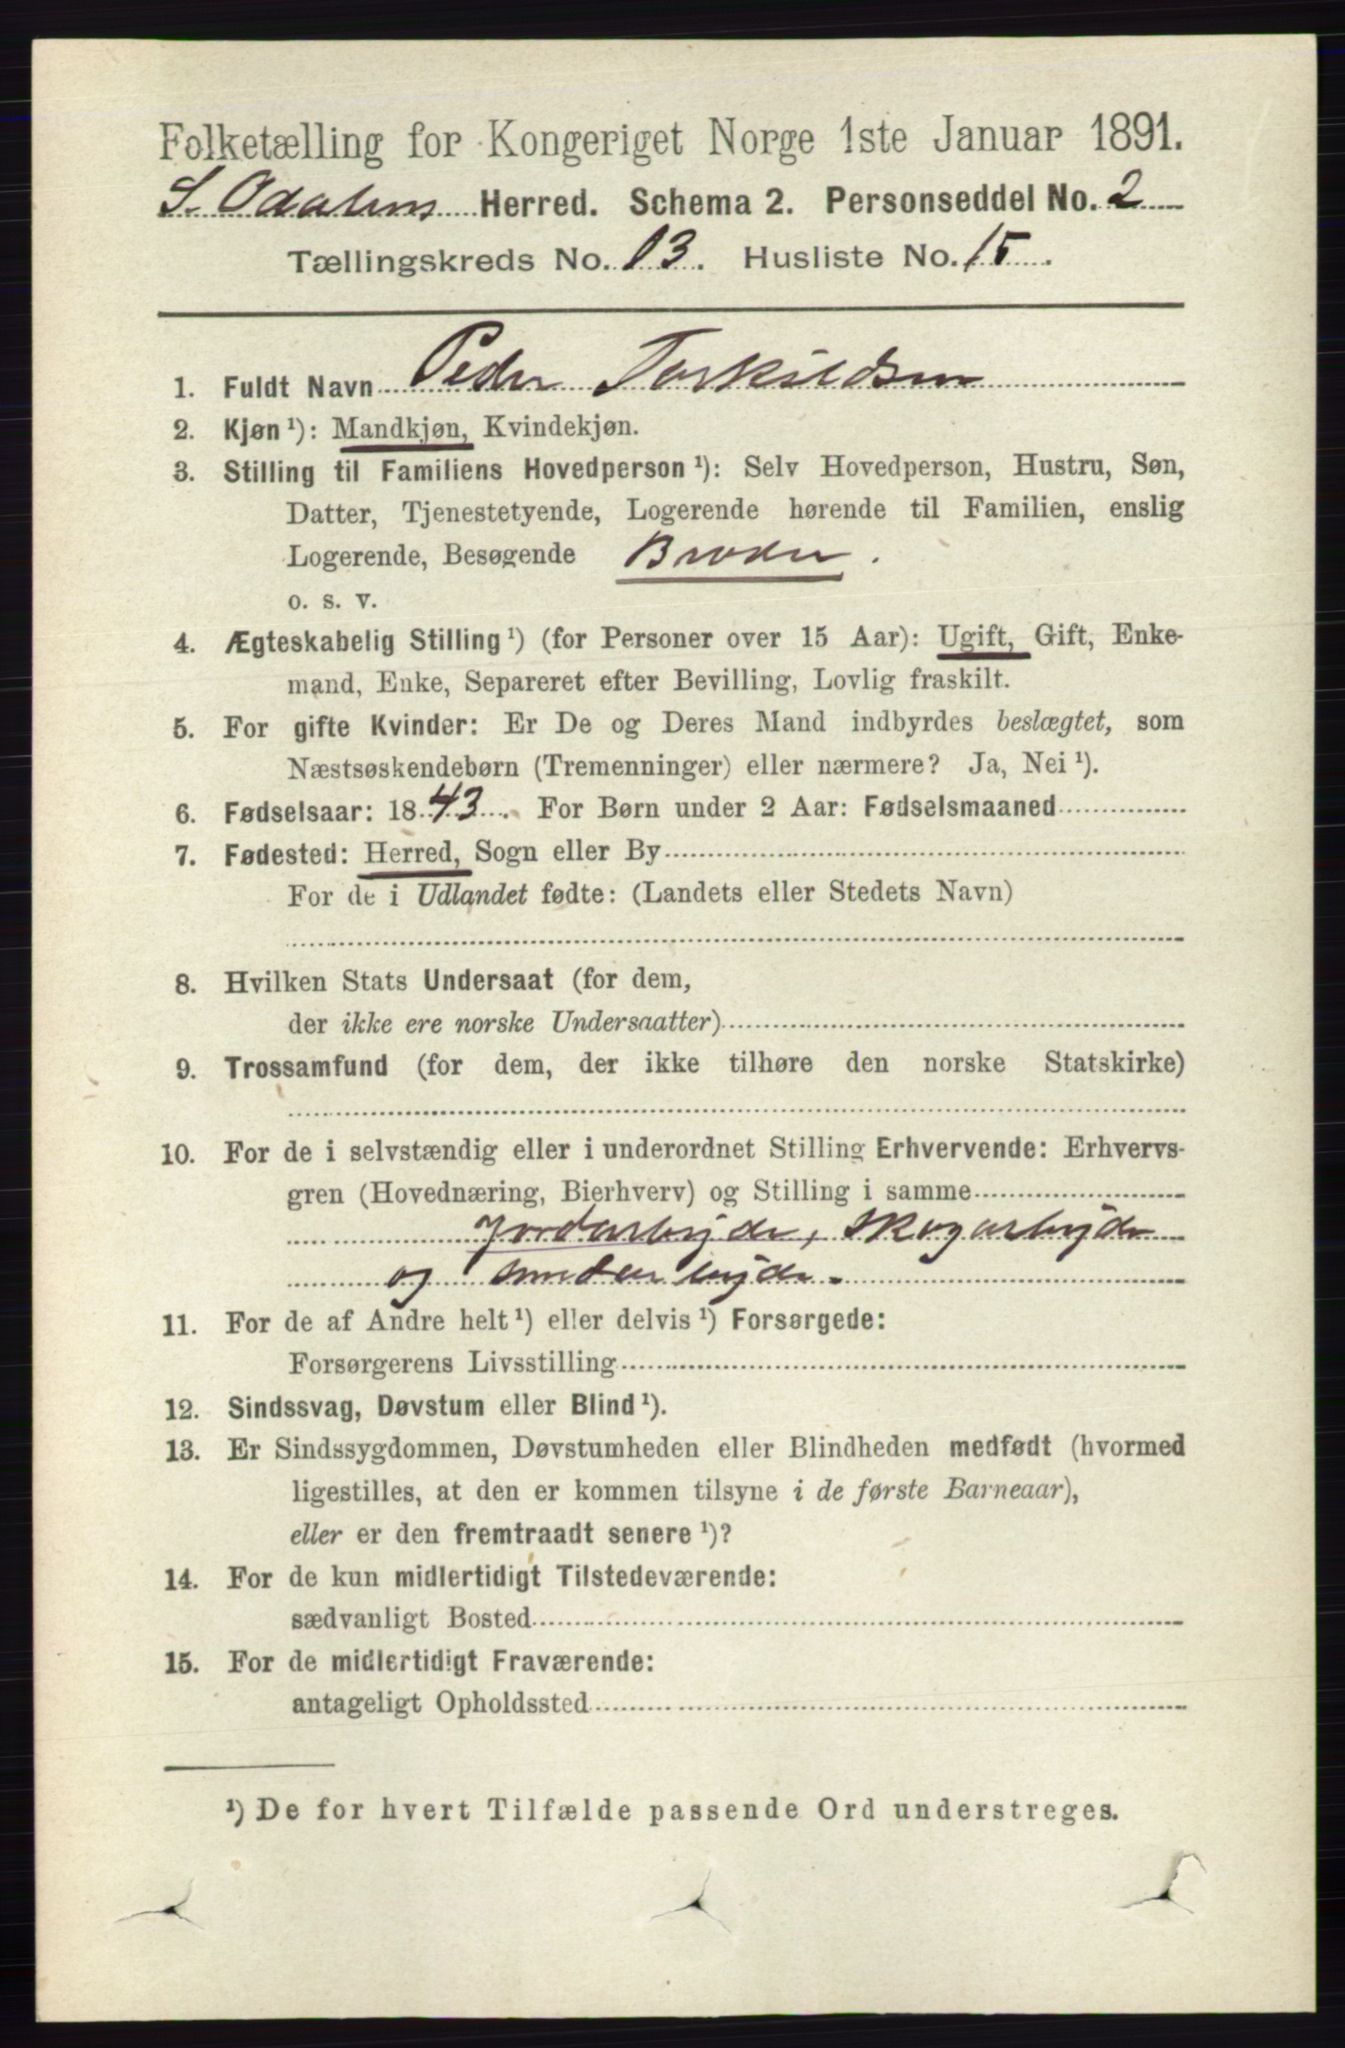 Folketælling for Kongeriget Norge 1ste Januar 1891.
S. Odalens Herred. Schema 2. Personseddel No. 2
Tællingskreds No. 13. Husliste No. 15.
1. Fuldt Navn Peder Torkildsen
2. Kjøn ¹): Mandkjøn, Kvindekjøn.
3. Stilling til Familiens Hovedperson ¹): Selv Hovedperson, Hustru, Søn,
Datter, Tjenestetyende, Logerende hørende til Familien, enslig
Logerende, Besøgende Broder.
o. s. v.
4. Ægteskabelig Stilling ¹) (for Personer over 15 Aar): Ugift, Gift, Enke-
mand, Enke, Separeret efter Bevilling, Lovlig fraskilt.
5. For gifte Kvinder: Er De og Deres Mand indbyrdes beslægtet, som
Næstsøskendebørn (Tremenninger) eller nærmere? Ja, Nei ¹).
6. Fødselsaar: 1843. For Børn under 2 Aar: Fødselsmaaned
7. Fødested: Herred, Sogn eller By
For de i Udlandet fødte: (Landets eller Stedets Navn)
8. Hvilken Stats Undersaat (for dem,
der ikke ere norske Undersaatter)
9. Trossamfund (for dem, der ikke tilhøre den norske Statskirke)
10. For de i selvstændig eller i underordnet Stilling Erhvervende: Erhvervs-
gren (Hovednæring, Bierhverv) og Stilling i samme
Jordarbejde, Skogarbejde
og smedarbejde.
11. For de af Andre helt ¹) eller delvis ¹) Forsørgede:
Forsørgerens Livsstilling
12. Sindssvag, Døvstum eller Blind ¹).
13. Er Sindssygdommen, Døvstumheden eller Blindheden medfødt (hvormed
ligestilles, at den er kommen tilsyne i de første Barneaar),
eller er den fremtraadt senere ¹)?
14. For de kun midlertidigt Tilstedeværende:
sædvanligt Bosted
15. For de midlertidigt Fraværende:
antageligt Opholdssted
¹) De for hvert Tilfælde passende Ord understreges.